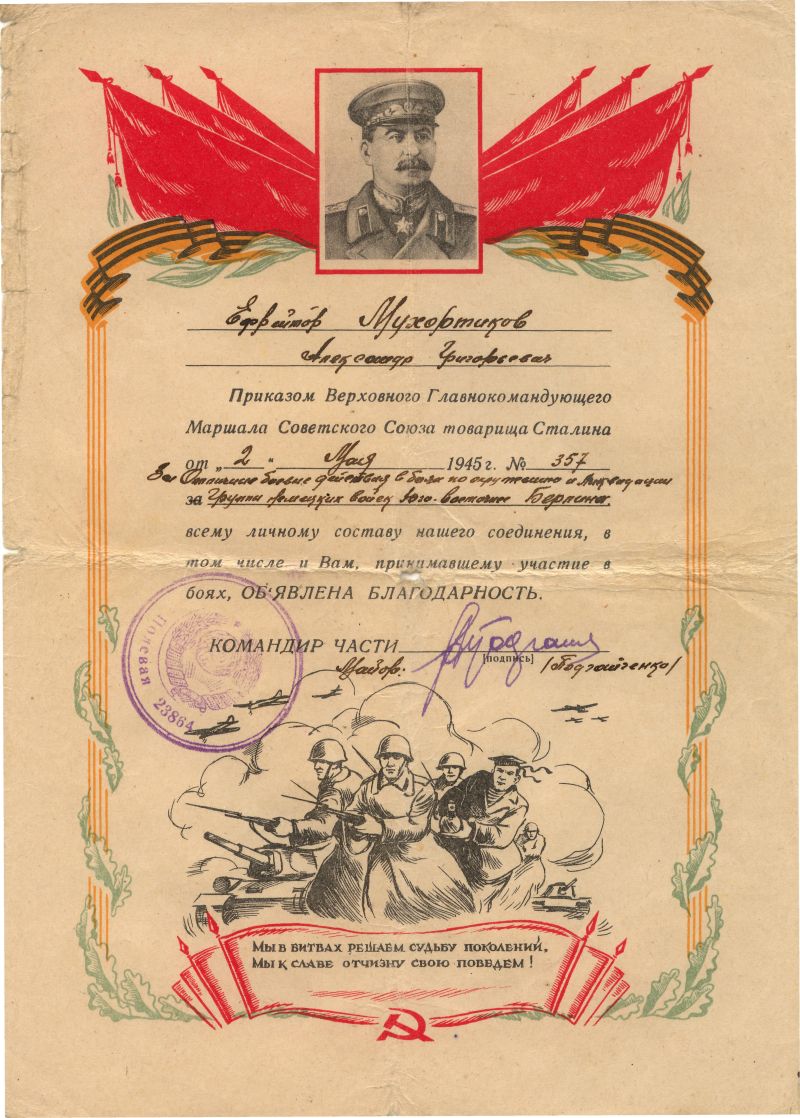 Ефрейтор Мухортиков
Александр Григорьевич
Приказом Верховного Главнокомандующего
Маршала Советского Союза товарища Сталина
от „2“ Мая 1945 г. № 357
За Отличные боевые действия в боях по окружению и ликвидации
за Группы немецких войск юго-восточнее Берлина,
всему личному составу нашего соединения, в
том числе и Вам, принимавшему участие в
боях, ОБ'ЯВЛЕНА БЛАГОДАРНОСТЬ.
КОМАНДИР ЧАСТИ
[подпись]
Майор
Полевая 23864
МЫ В БИТВАХ РЕШАЕМ СУДЬБУ ПОКОЛЕНИЙ,
МЫ К СЛАВЕ ОТЧИЗНУ СВОЮ ПОВЕДЕМ!